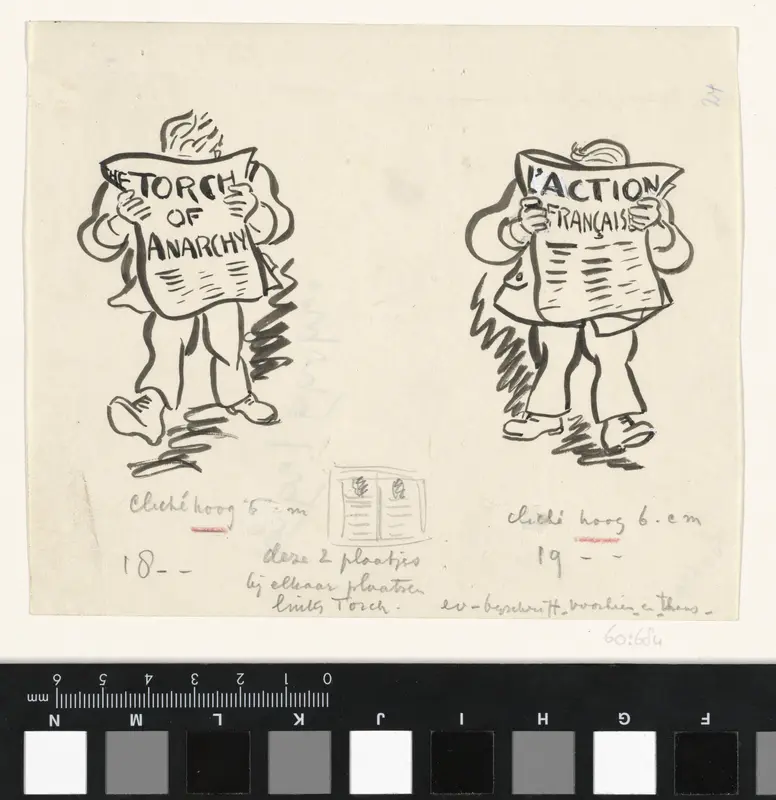 24
HE TORCH
OF
ANARCHY
L'ACTION
FRANÇAISE
cliché hoog 6 c m
18--
cliché hoog 6. c m
19 - -
deze 2 plaatjes
bij elkaar plaatsen
links Torch.
ev-bijschrift voorheen en thans.
60:684
mm 6 5 4 3 2 1 0
N M L K J I H G F